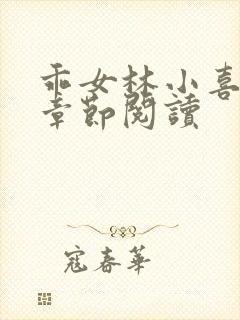 乖女林小喜
章節閱讀
寇春華